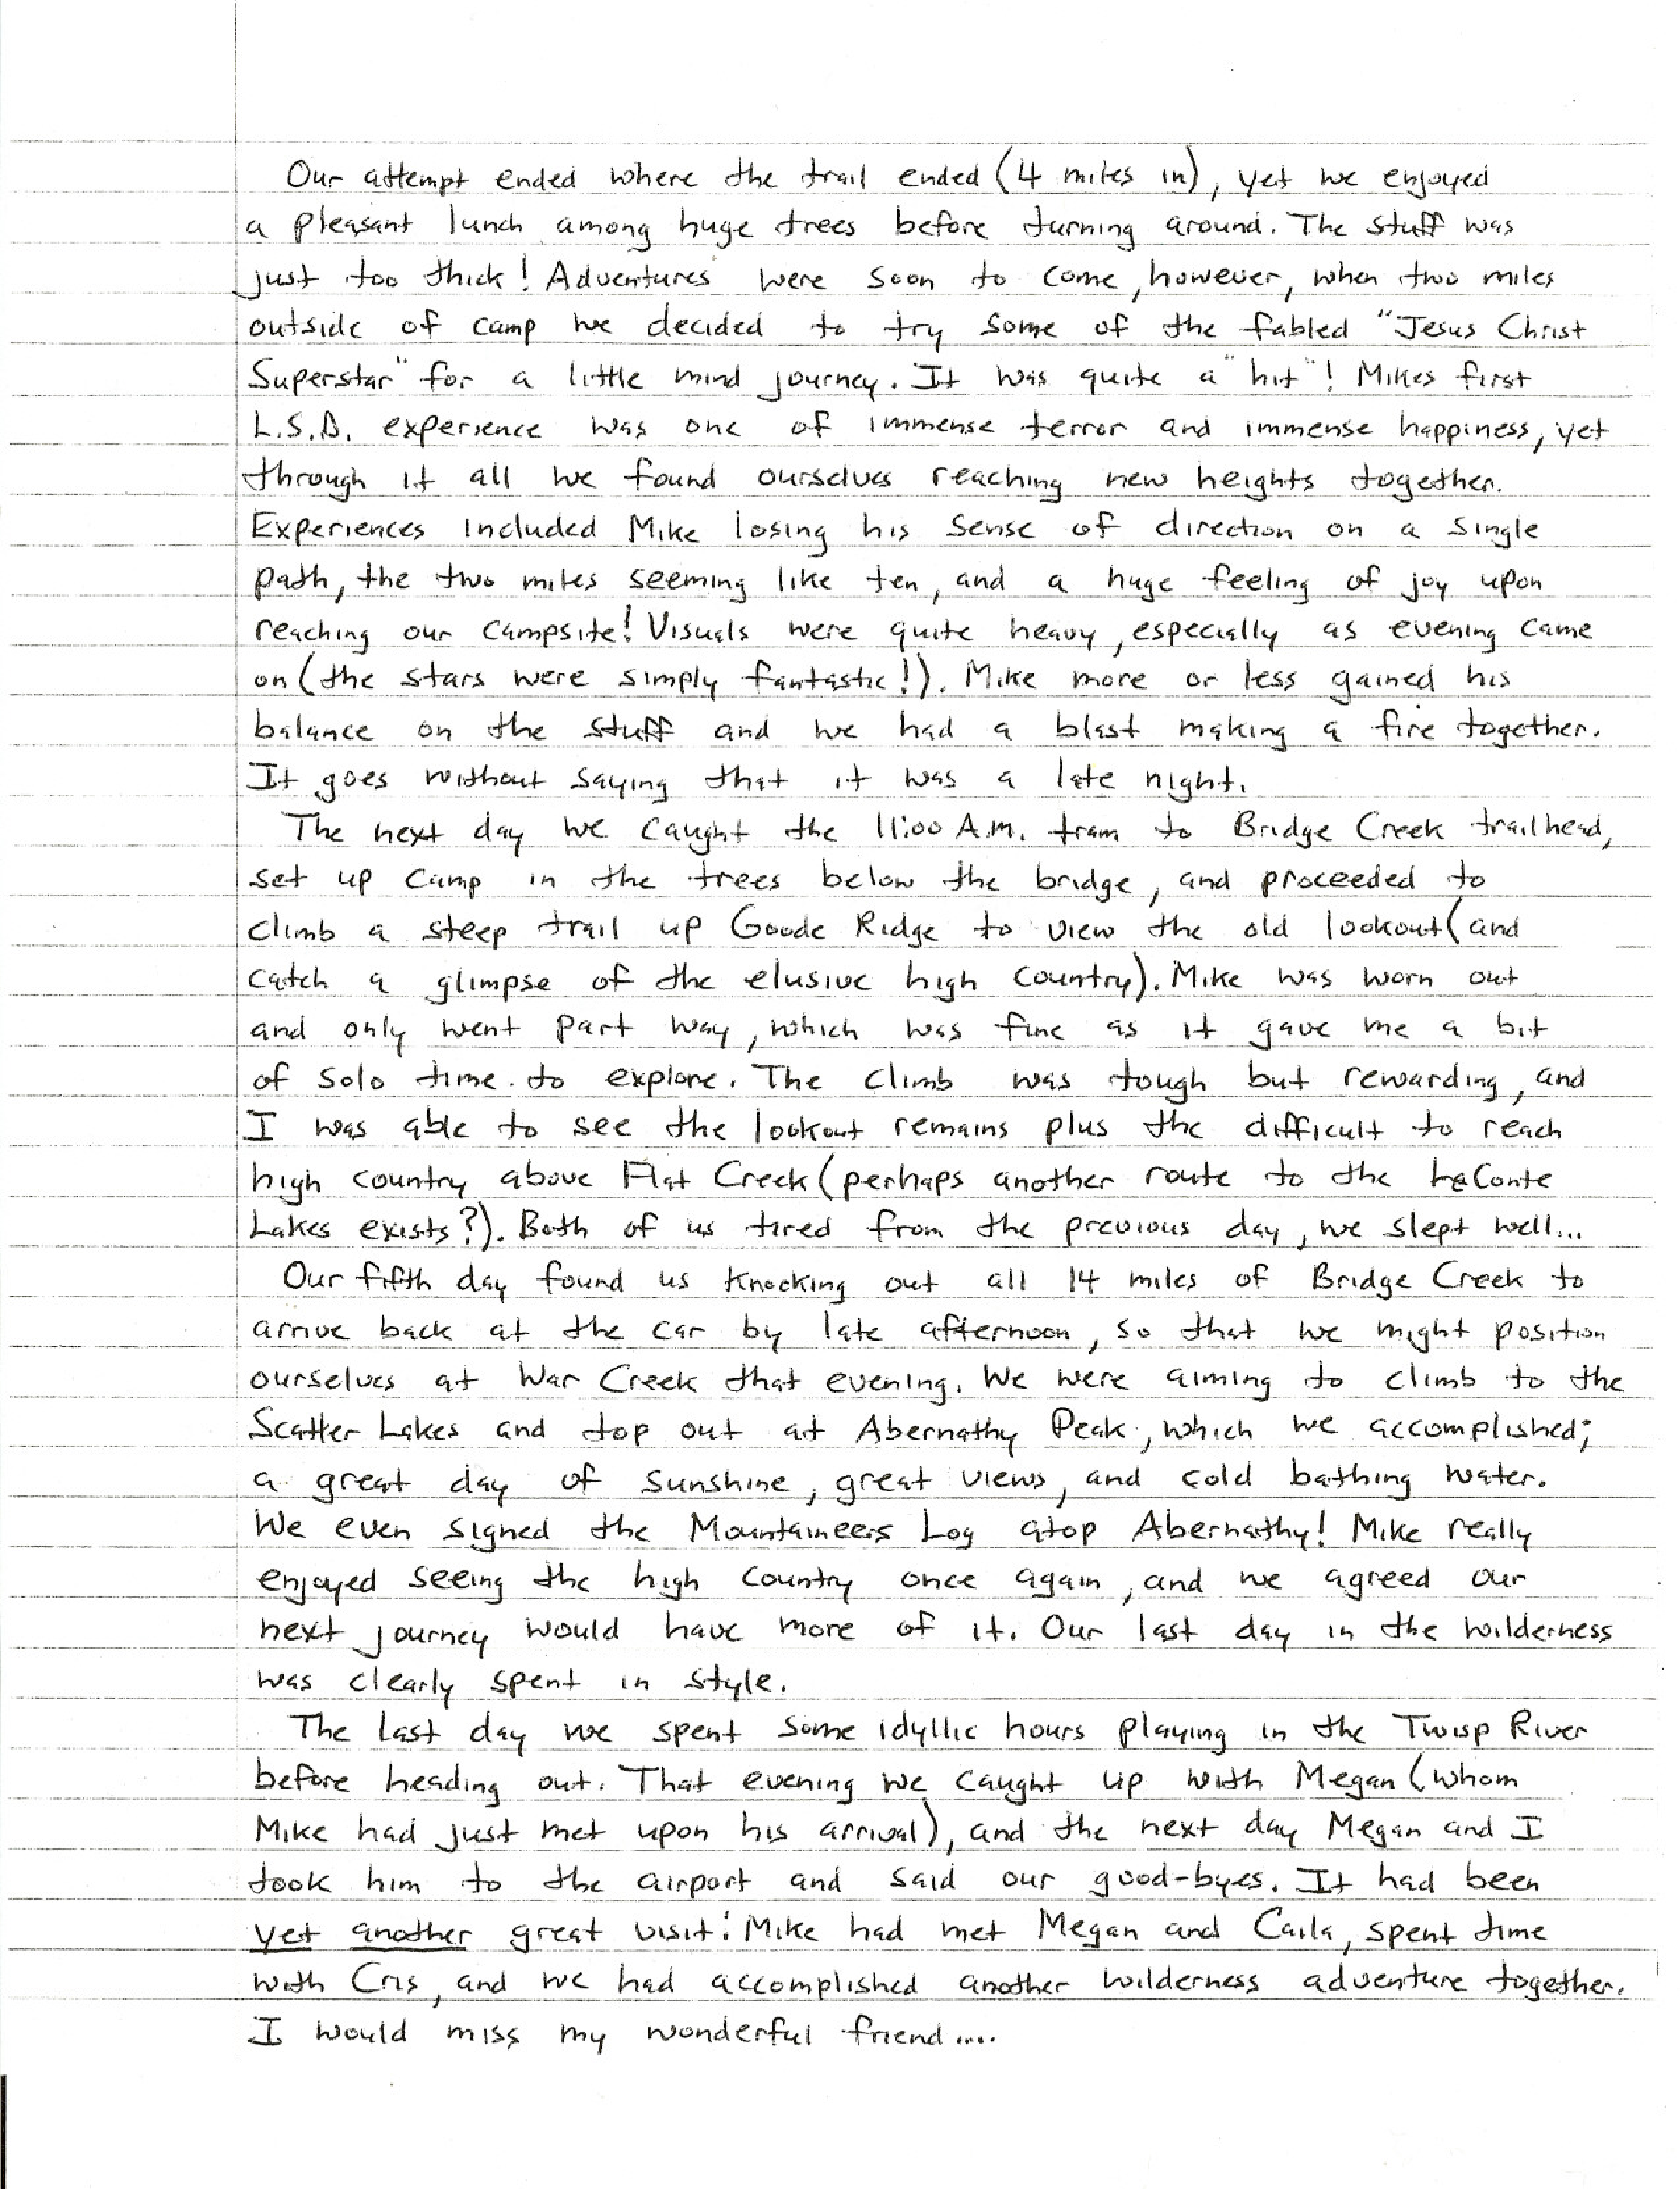 Our attempt ended where the trail ended (4 miles in), yet we enjoyed
a pleasant lunch among huge trees before turning around. The stuff was
just too thick! Adventures were soon to come, however, when two miles
outside of camp we decided to try some of the fabled "Jesus Christ
Superstar" for a little mind journey. It was quite a "hit"! Mikes first
L.S.D. experience was one of immense terror and immense happiness, yet
through it all we found ourselves reaching new heights together.
Experiences included Mike losing his sense of direction on a single
path, the two miles seeming like ten, and a huge feeling of joy upon
reaching our campsite! Visuals were quite heavy, especially as evening came
on (the stars were simply fantastic!). Mike more or less gained his
balance on the stuff and we had a blast making a fire together.
It goes without saying that it was a late night.
The next day we caught the 11:00 A.M. tram to Bridge Creek trailhead,
set up camp in the trees below the bridge, and proceeded to
climb a steep trail up Goode Ridge to view the old lookout (and
catch a glimpse of the elusive high country). Mike was worn out
and only went part way, which was fine as it gave me a bit
of solo time to explore. The climb was tough but rewarding, and
I was able to see the lookout remains plus the difficult to reach
high country above Flat Creek (perhaps another route to the LeConte
Lakes exists?). Both of us tired from the previous day, we slept well...
Our fifth day found us knocking out all 14 miles of Bridge Creek to
arrive back at the car by late afternoon, so that we might position
ourselves at War Creek that evening. We were aiming to climb to the
Scatter Lakes and top out at Abernathy Peak, which we accomplished;
a great day of sunshine, great views, and cold bathing water.
We even signed the Mountaineers Log atop Abernathy! Mike really
enjoyed seeing the high country once again, and we agreed our
next journey would have more of it. Our last day in the wilderness
was clearly spent in style.
The last day we spent some idyllic hours playing in the Twisp River
before heading out. That evening we caught up with Megan (whom
Mike had just met upon his arrival), and the next day Megan and I
took him to the airport and said our good-byes. It had been
yet another great visit: Mike had met Megan and Caila, spent time
with Cris, and we had accomplished another wilderness adventure together.
I would miss my wonderful friend....